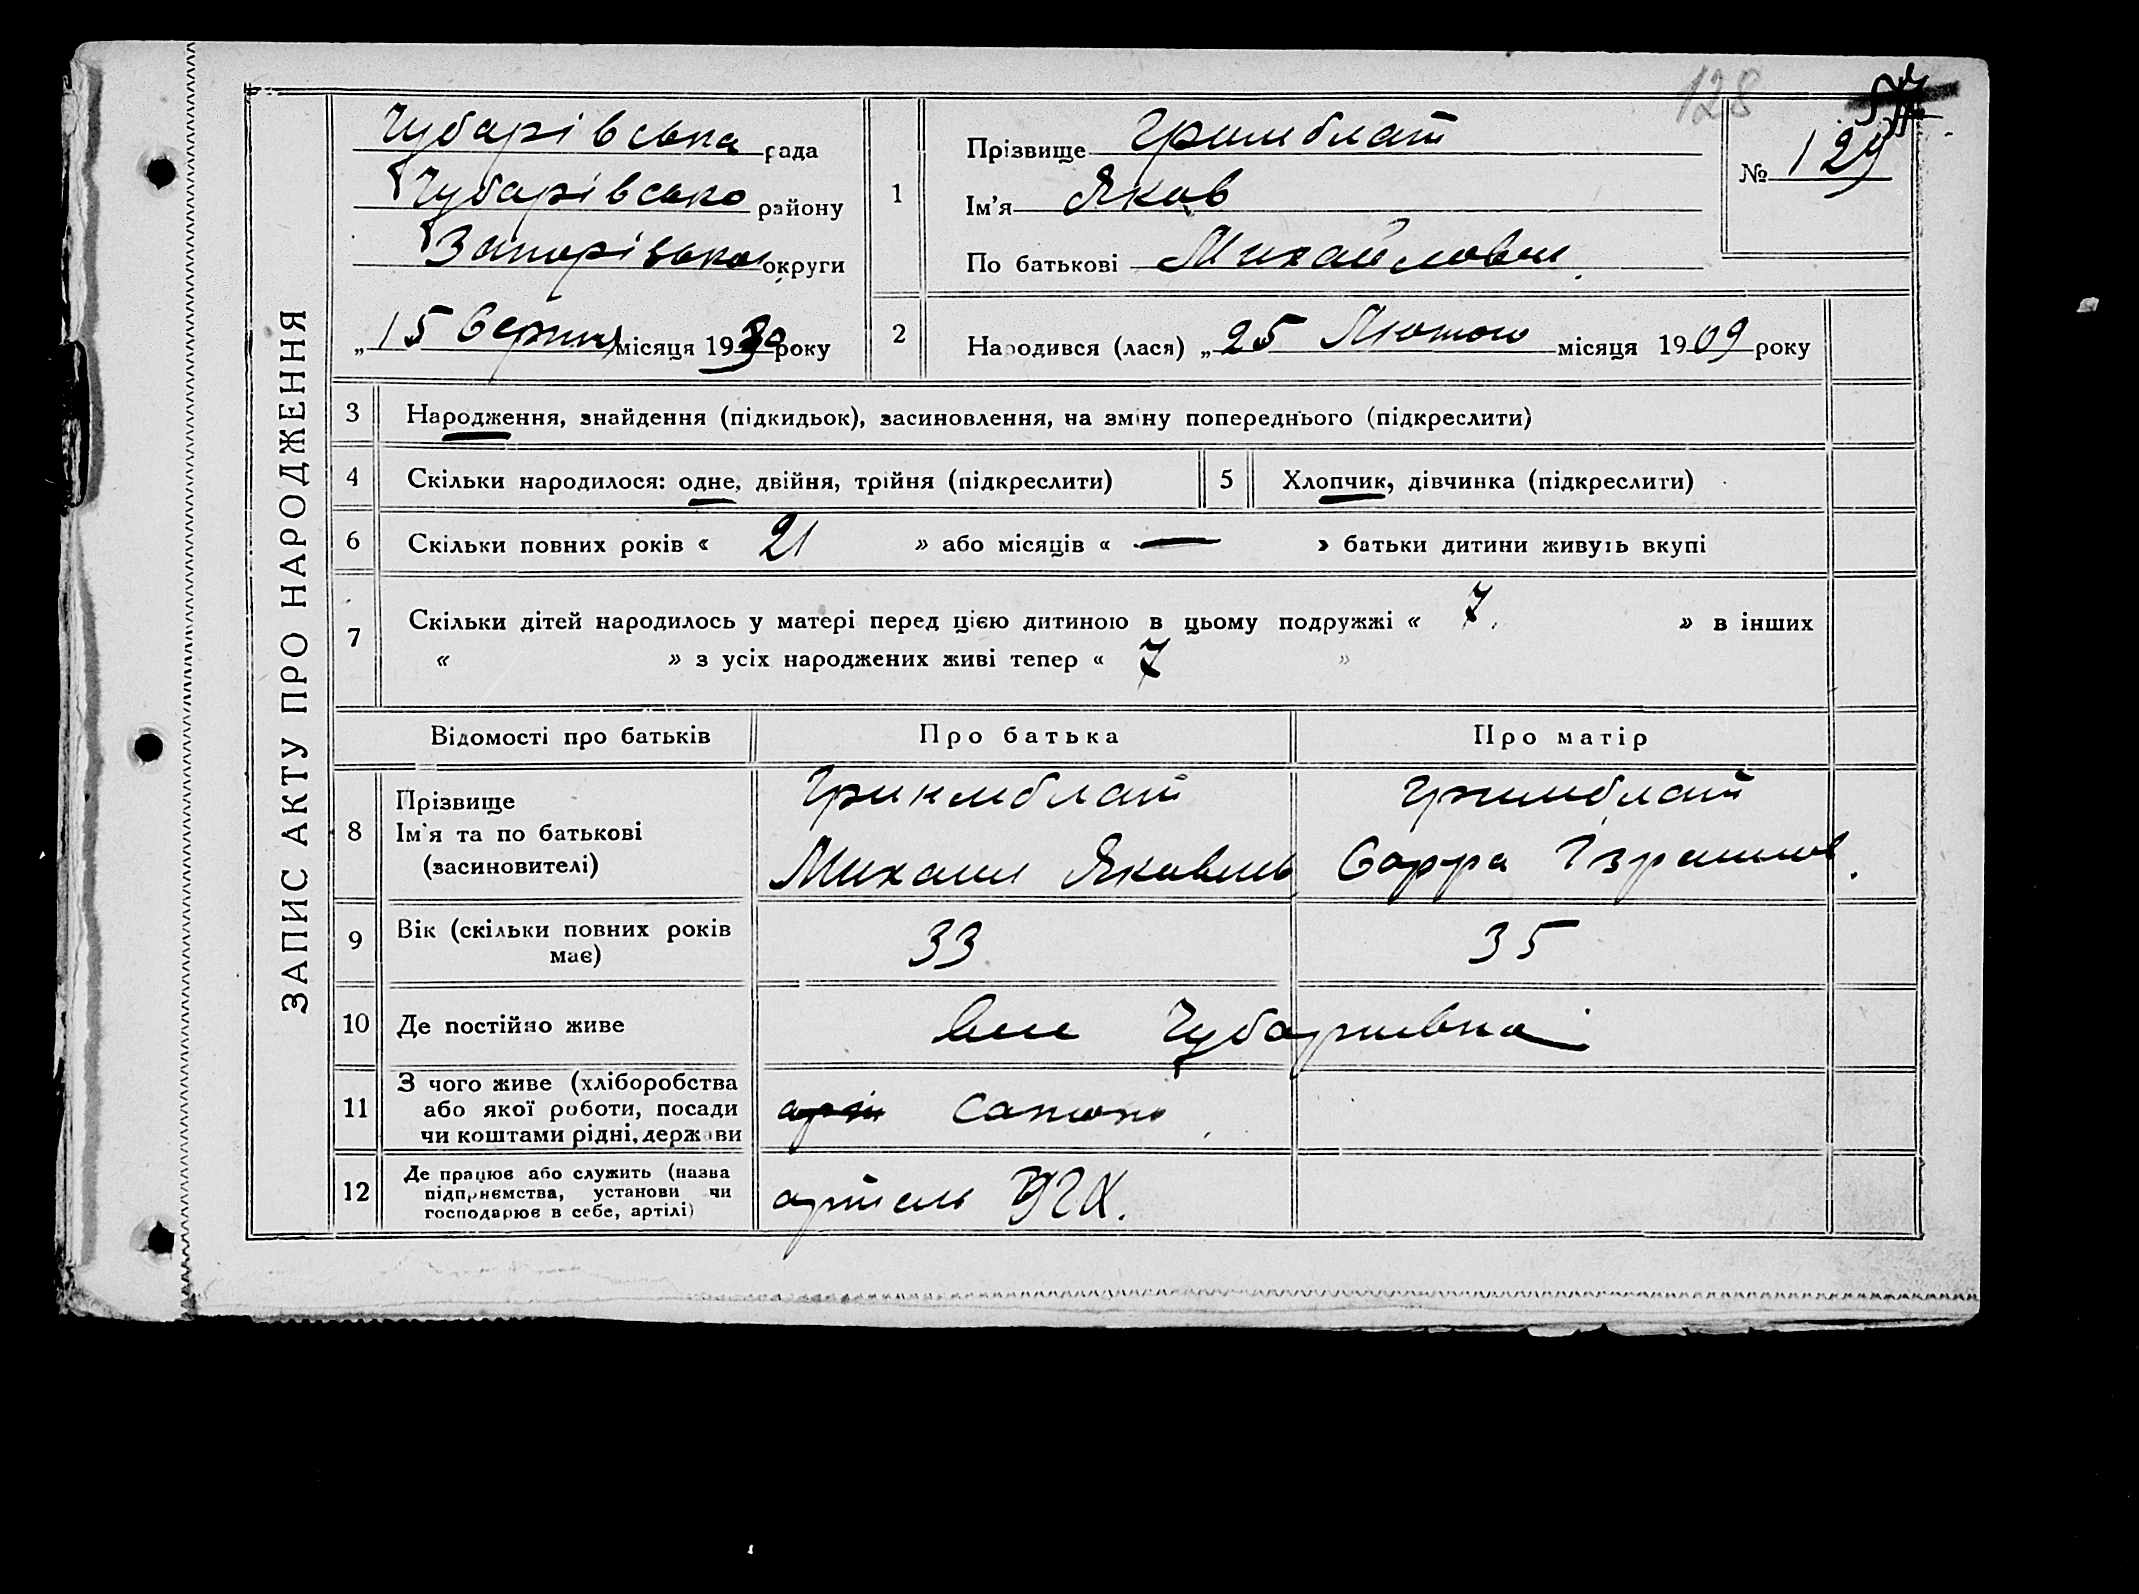 128
ЗАПИС АКТУ ПРО НАРОДЖЕННЯ
Чубарівська рада
Чубарівсько району
округи
„15 Серпня місяця 1930 року
1
Прізвище Гримблат
Ім'я Яков
По батькові Михайлович
№ 129
2
Народився (лася) „25 Лютого місяця 1909 року
3 Народження, знайдення (підкидьок), засиновлення, на зміну попереднього (підкреслити)
4 Скільки народилося: одне, двійня, трійня (підкреслити)
5 Хлопчик, дівчинка (підкреслити)
6 Скільки повних років « 21 » або місяців « — » батьки дитини живуть вкупі
7 Скільки дітей народилось у матері перед цією дитиною в цьому подружжі « 7. » в інших
« » з усіх народжених живі тепер « 7 »
Відомості про батьків
Про батька
Про матір
8 Прізвище
Ім'я та по батькові
(засиновителі)
Гринмблат
Михаил Яковлев
Гримблат
Сарра Ізраилев.
9 Вік (скільки повних років
має)
33
35
10 Де постійно живе
Чубаривка
11 З чого живе (хліборобства
або якої роботи, посади
чи коштами рідні, держави
сапожн
12 Де працює або служить (назва
підприємства, установи чи
господарює в себе, артілі)
артель